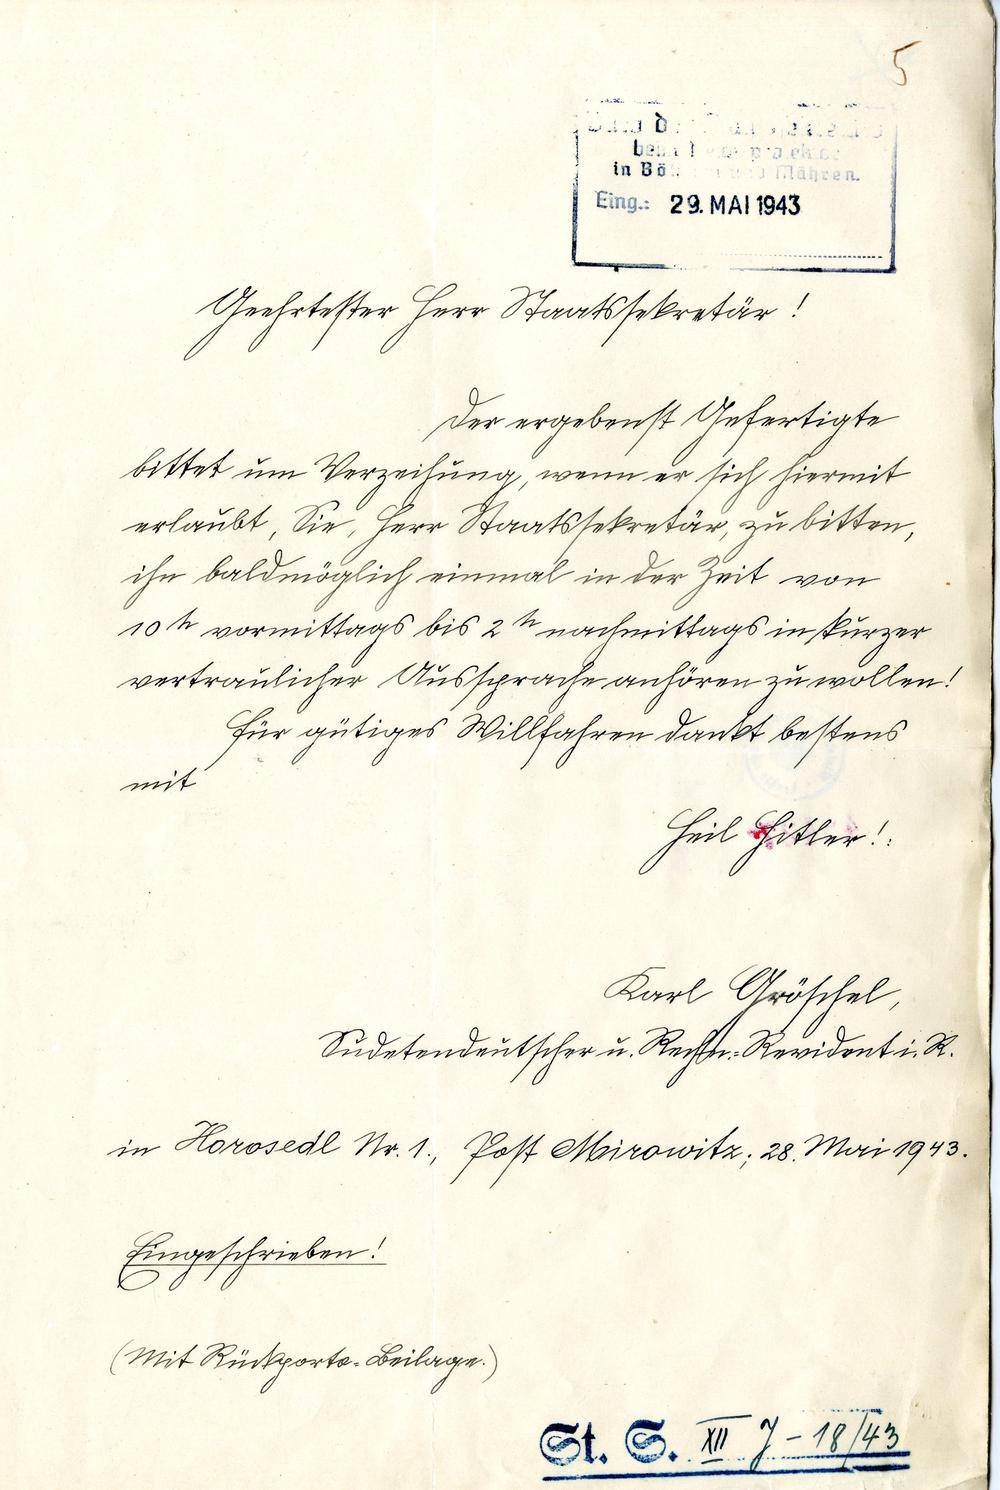 5
in Böhmen und Mähren.
Eing.: 29. MAI 1943
Geehrtester Herr Staatssekretär !
Der ergebenst Gefertigte
bittet um Verzeihung, wenn er sich hiermit
erlaubt, Sie, Herr Staatssekretär, zu bitten,
ihn baldmöglich einmal in der Zeit von
10 h vormittags bis 2 h nachmittags in kurzer
vertraulicher Aussprache anhören zu wollen!
Für gütiges Willfahren dankt bestens
mit
Heil Hitler!:
Karl Gröschel,
Sudetendeutscher u. Rechn.-Revident i. R.
in Horosedl Nr. 1., Post Mirowitz; 28. Mai 1943.
Eingeschrieben!
(Mit Rückporto-Beilage.)
St. S. XII J - 18/43